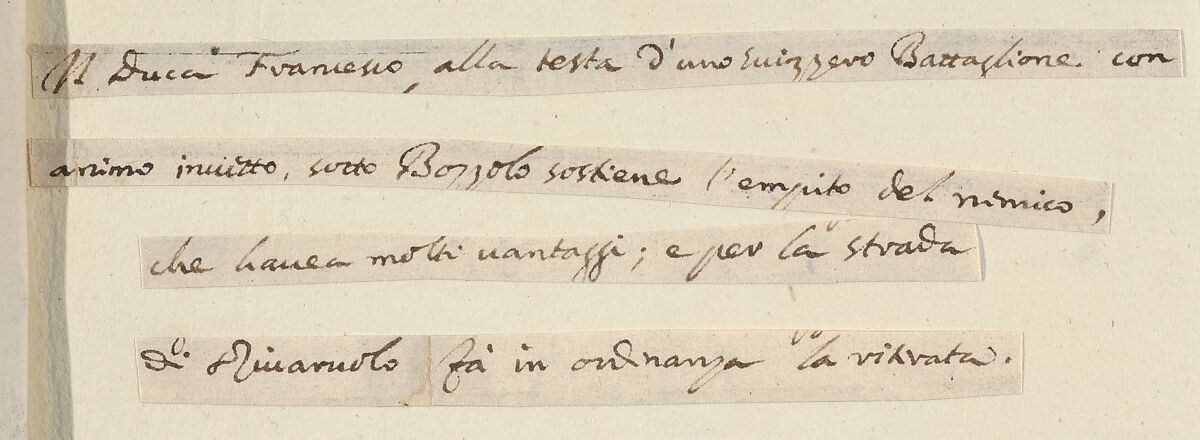 Il Duca Francesco, alla testa d'uno suizzero Battaglione con
animo inuitto, sotto Bozzolo sostiene l'empito del nimico,
che hauea molti uantaggi; e per la strada
di Riuaruolo fà in ordinanza la ritirata.